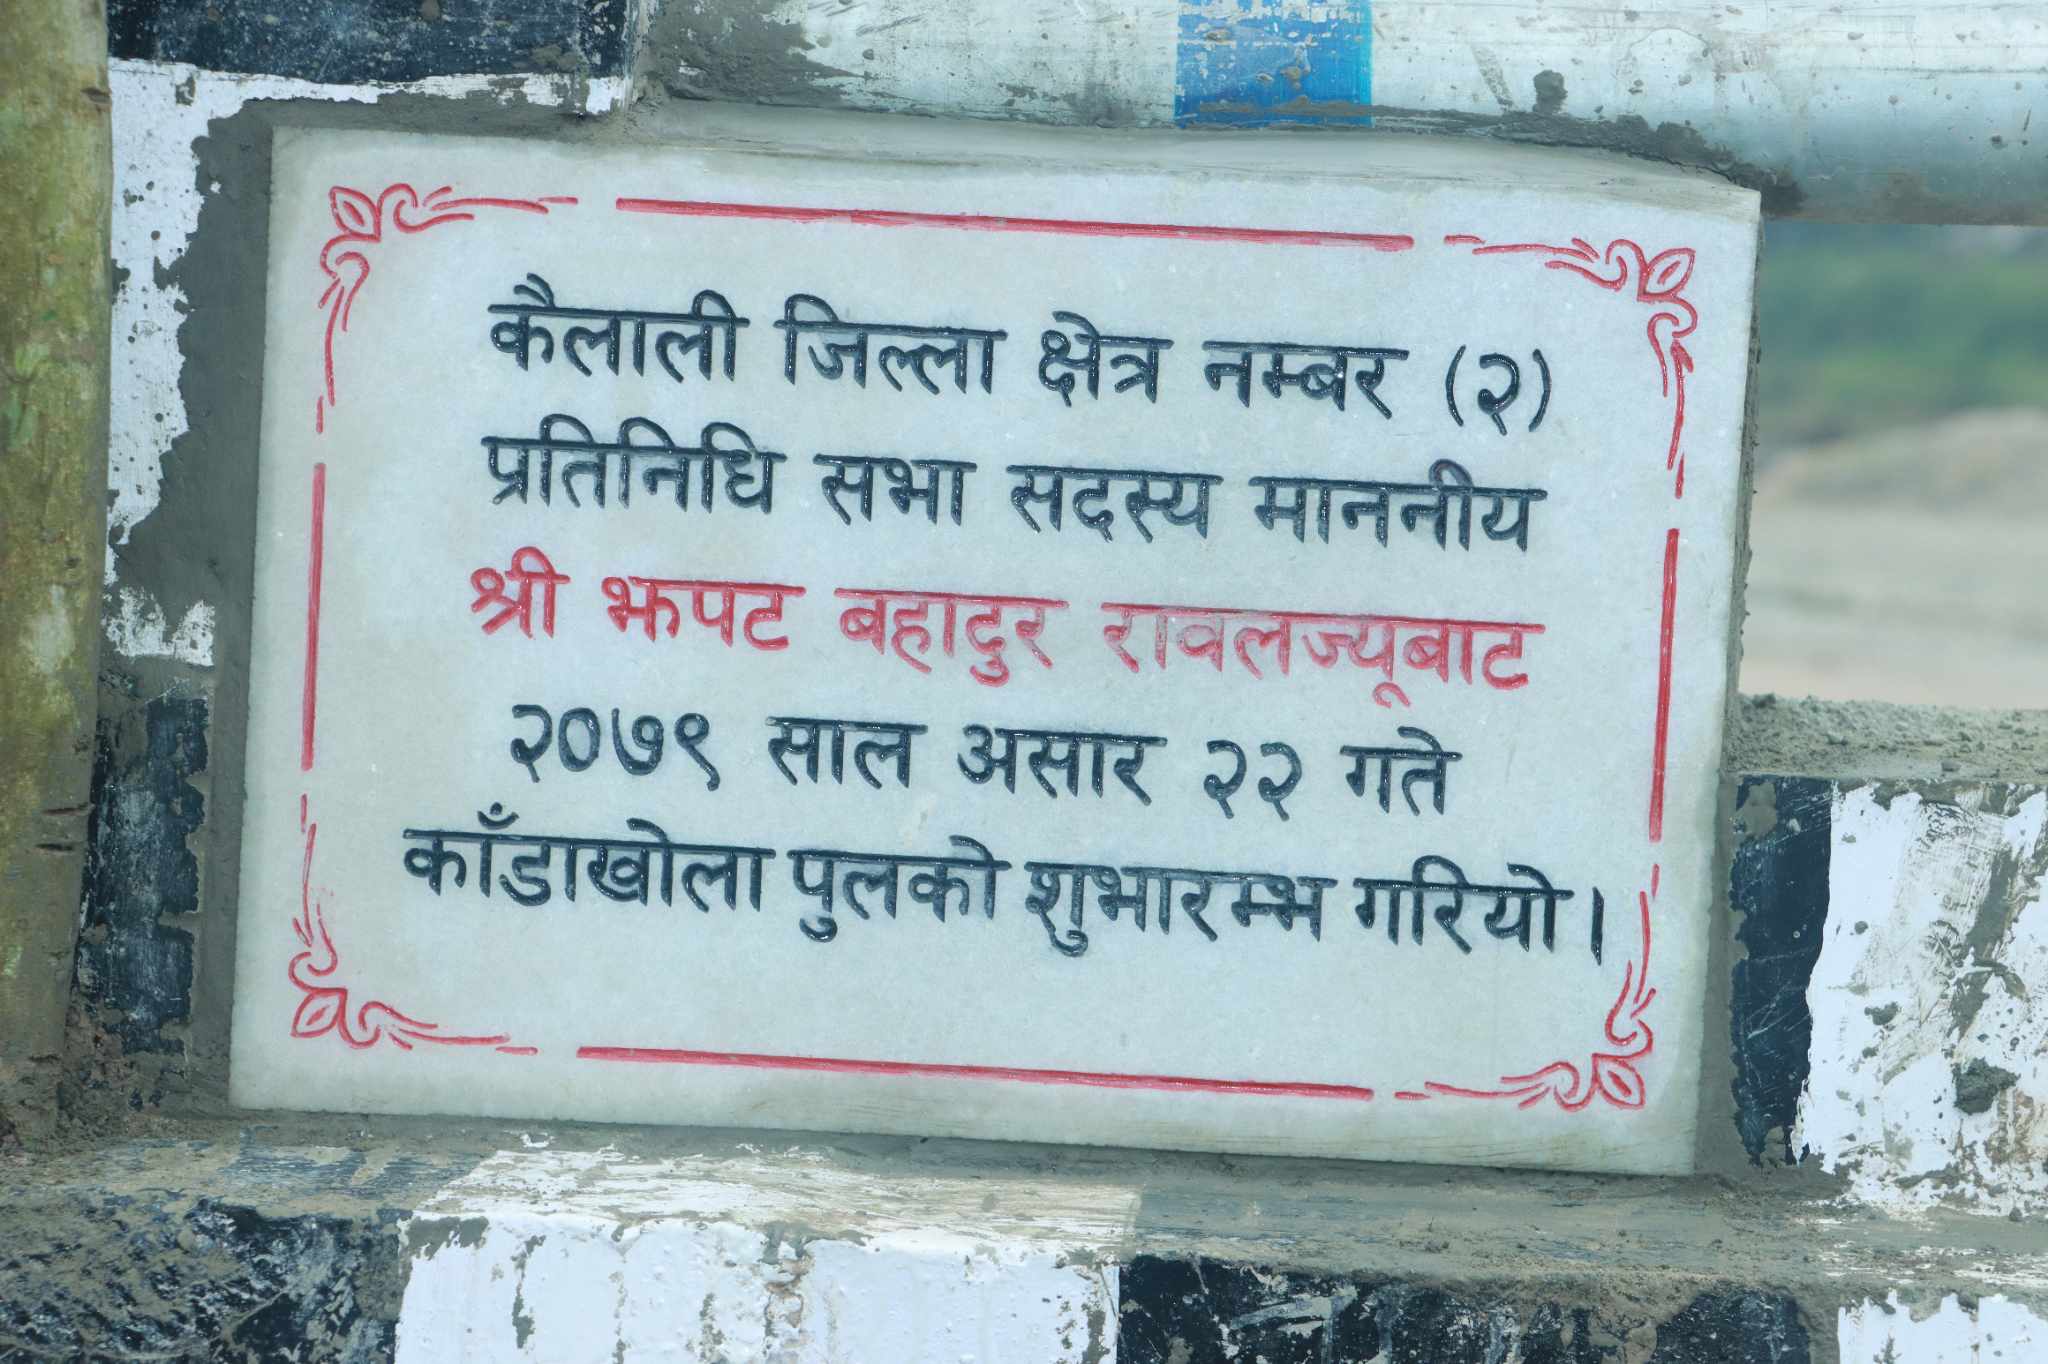 कैलाली जिल्ला क्षेत्र नम्बर (२)
प्रतिनिधि सभा सदस्य माननीय
श्री झपट बहादुर रावलज्यूबाट
२०७९ साल असार २२ गते
काँडाखोला पुलको शुभारम्भ गरियो।